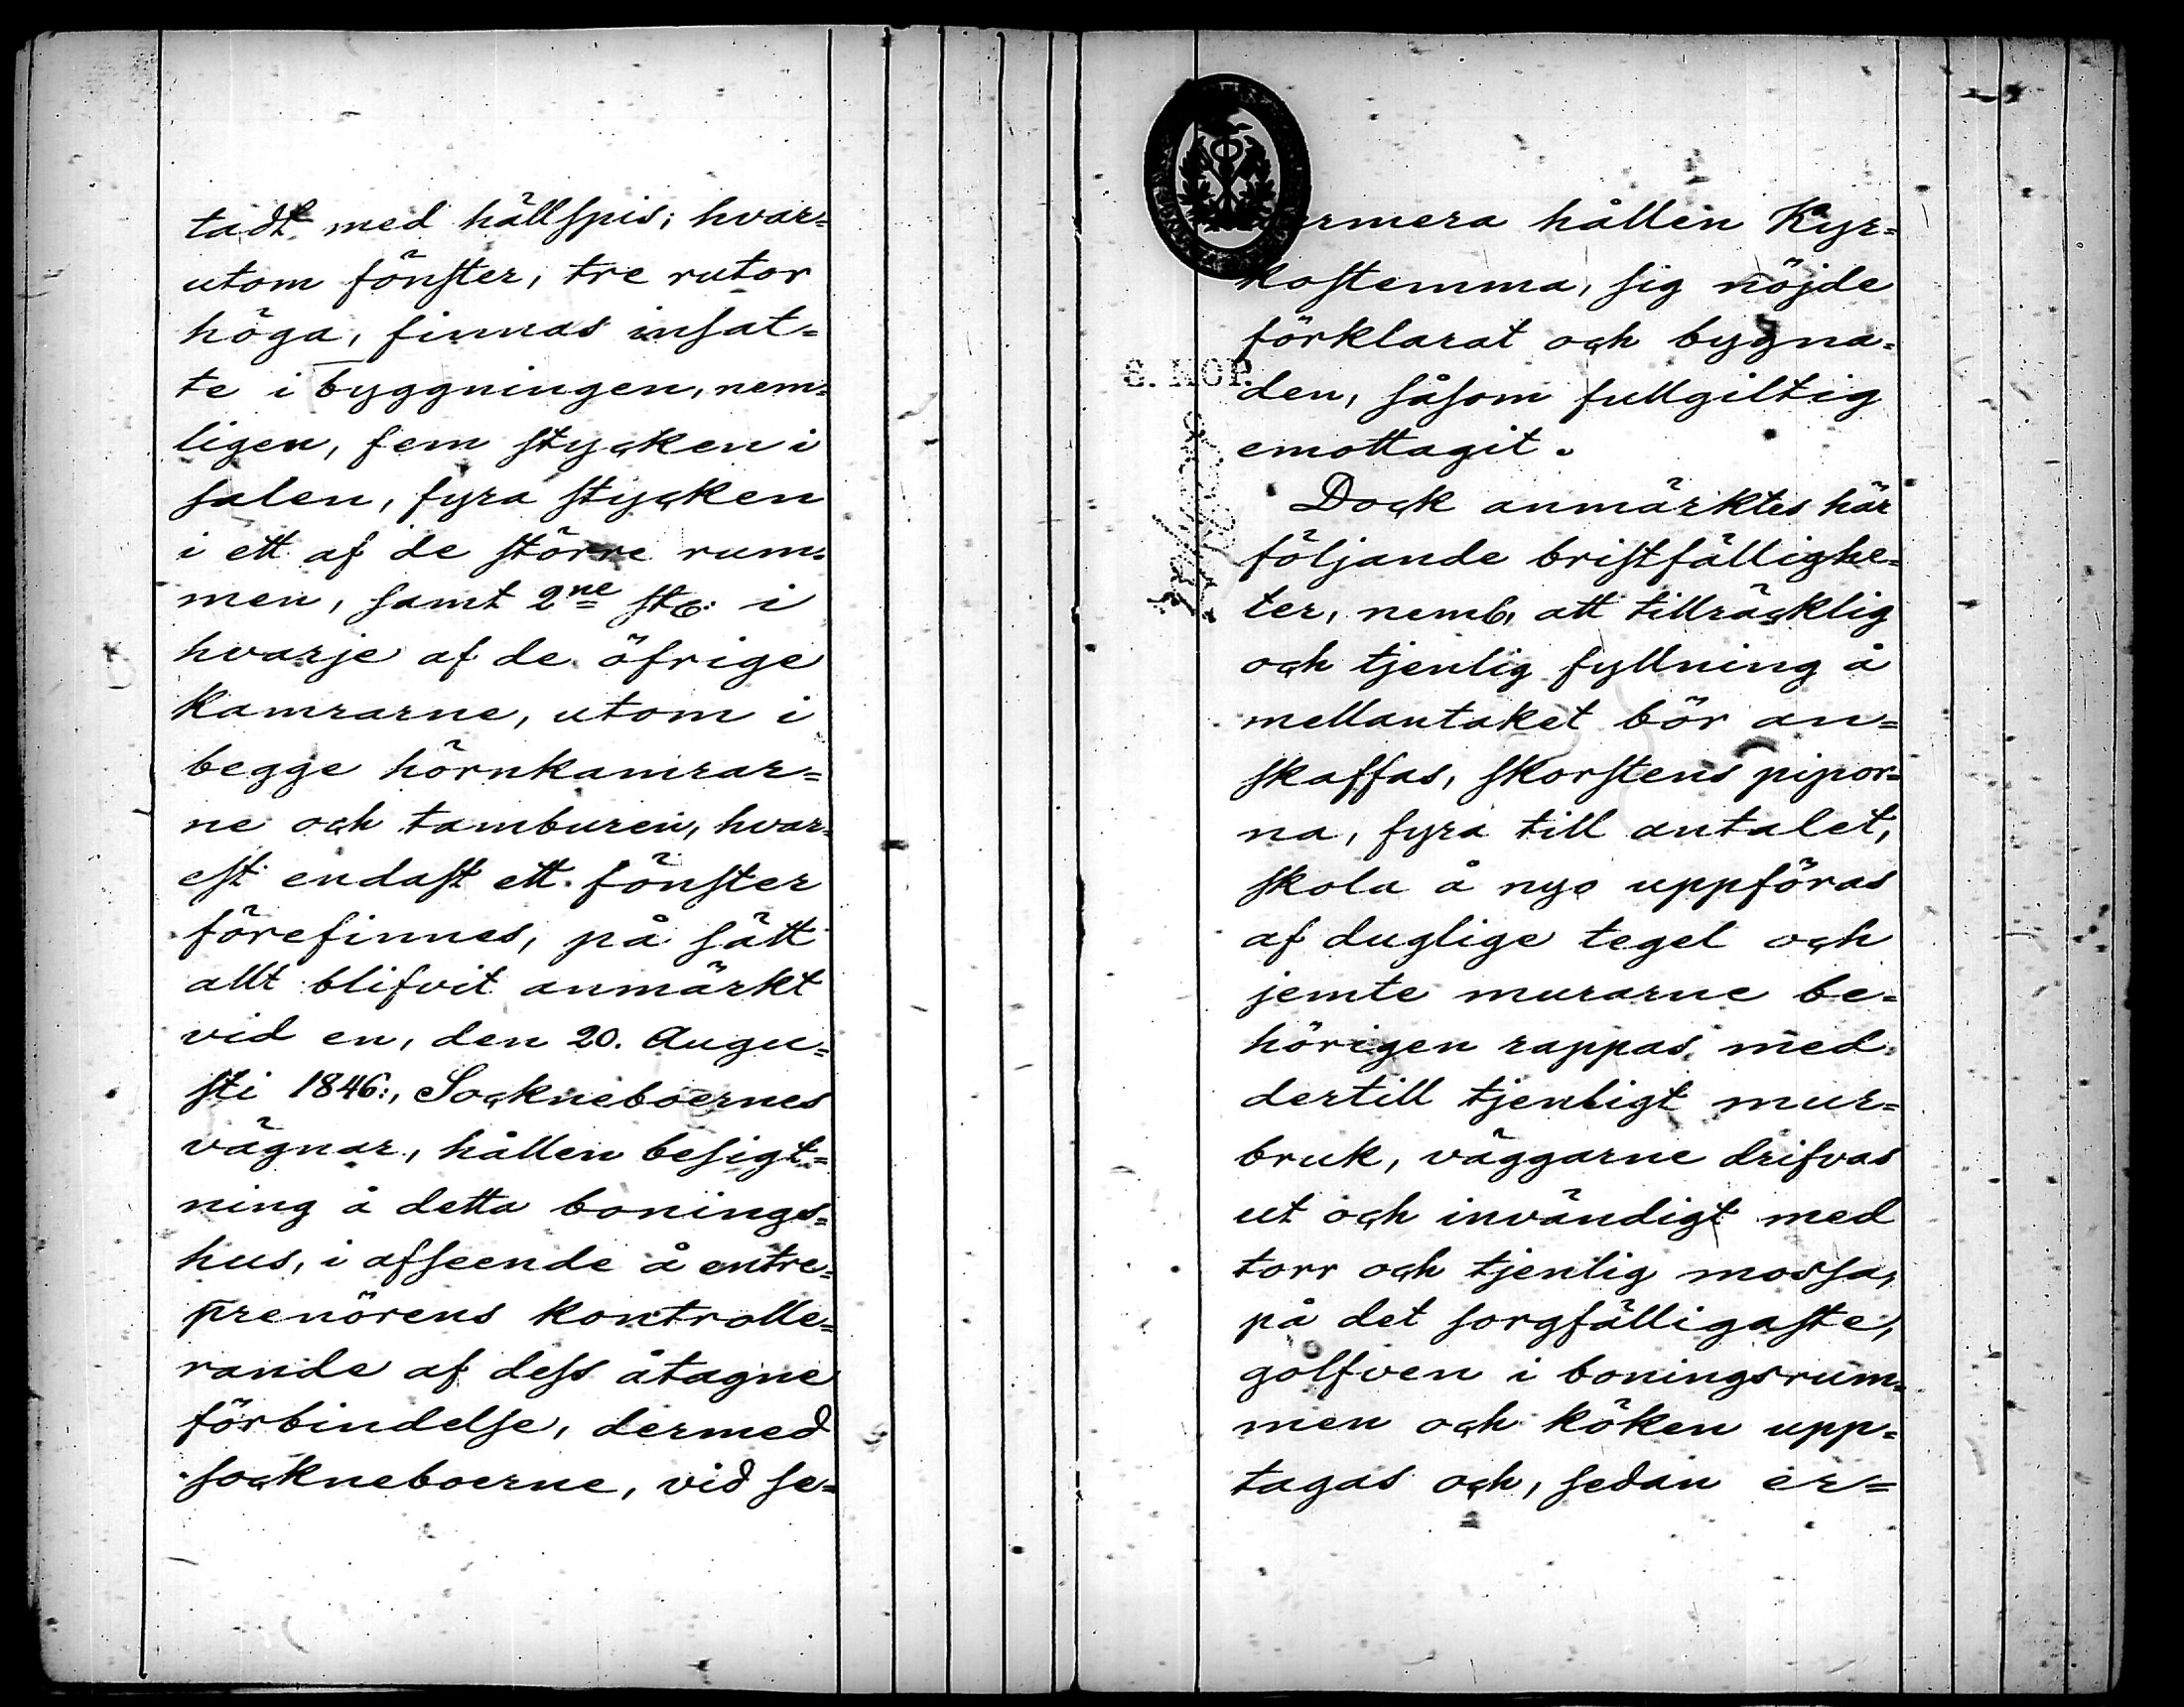 tadt med hällspis; hvar=
utom fönster, tre rutor
höga, finnas insat=
te i byggningen, nem=
ligen, fem stycken i
salen, fyra stycken
i ett af de större rum=
men, samt 2ne st: i
hvarje af de öfrige
kamrarne, utom i
begge hörnkamrar=
ne och tamburen, hvar=
est endast ett fönster
förefinnes, på sätt
allt blifvit anmärkt
vid en, den 20. Augu=
sti 1846:, Sockneboernes
vägnar, hållen besigt=
ning å detta bonings=
hus, i afseende å entre=
prenörens kontrolle=
rande af dess åtagne
förbindelse, dermed
sockneboerne, vid se=
rmera hållen Kyr=
kostemma, sig nöjde
förklarat och bygna=
den, såsom fullgiltig
emottagit.
Dock anmärktes här
följande bristfällighe=
ter, neml, att tillräcklig
och tjenlig fyllning å
mellantaket bör an=
skaffas, skorstens pipor=
na, fyra till antalet,
skola å nyo uppföras
af duglige tegel och
jemte murarne be=
hörigen rappas med
dertill tjenligt mur=
bruk, väggarne drifvas
ut och invändigt med
torr och tjenlig mossa,
på det sorgfälligaste,
golfven i boningsrum=
men och köken upp=
tagas och, sedan er=